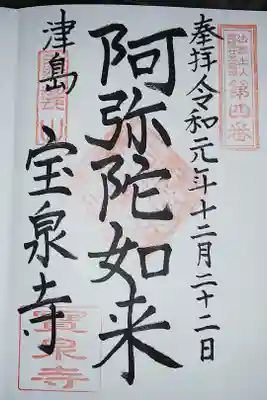 第四番
奉拝 令和元年十二月二十二日
阿弥陀如来
津島
宝泉寺
寳泉寺